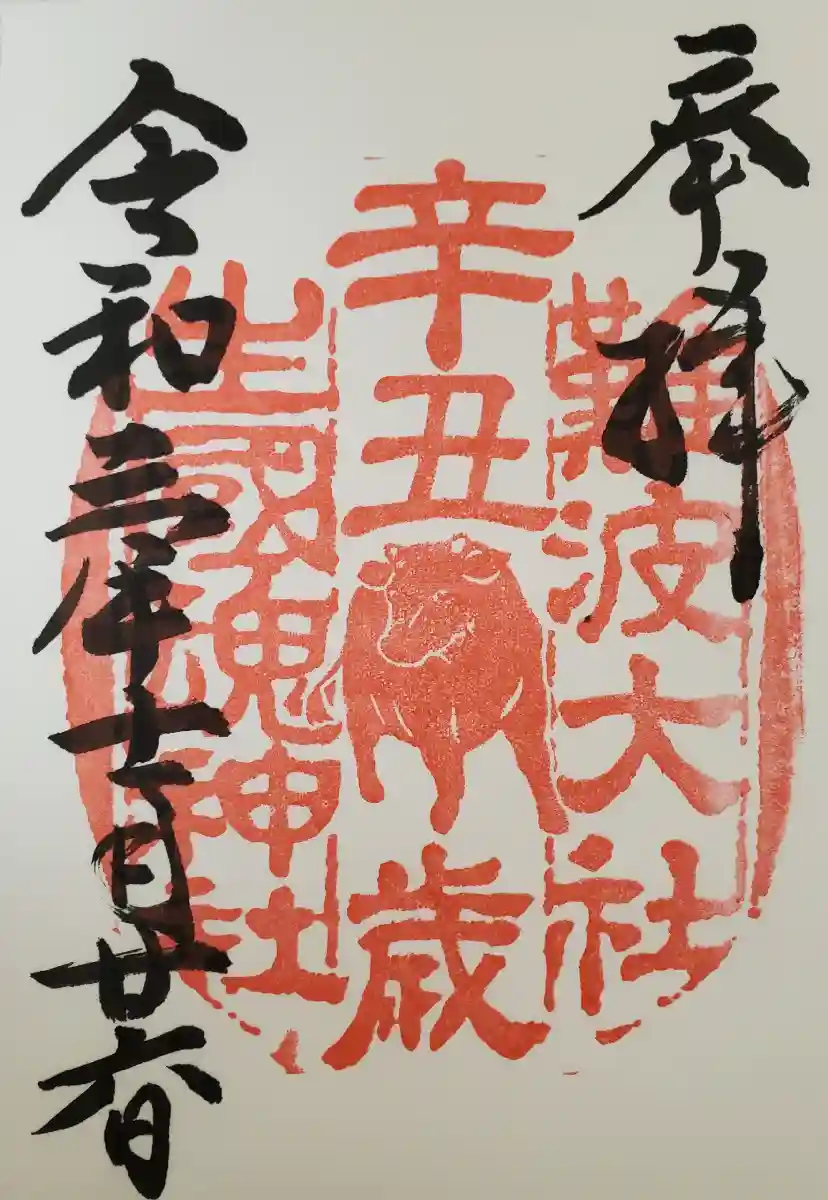 奉拝
難波大社
辛丑
歳
生國魂神社
令和三年十一月廿六日